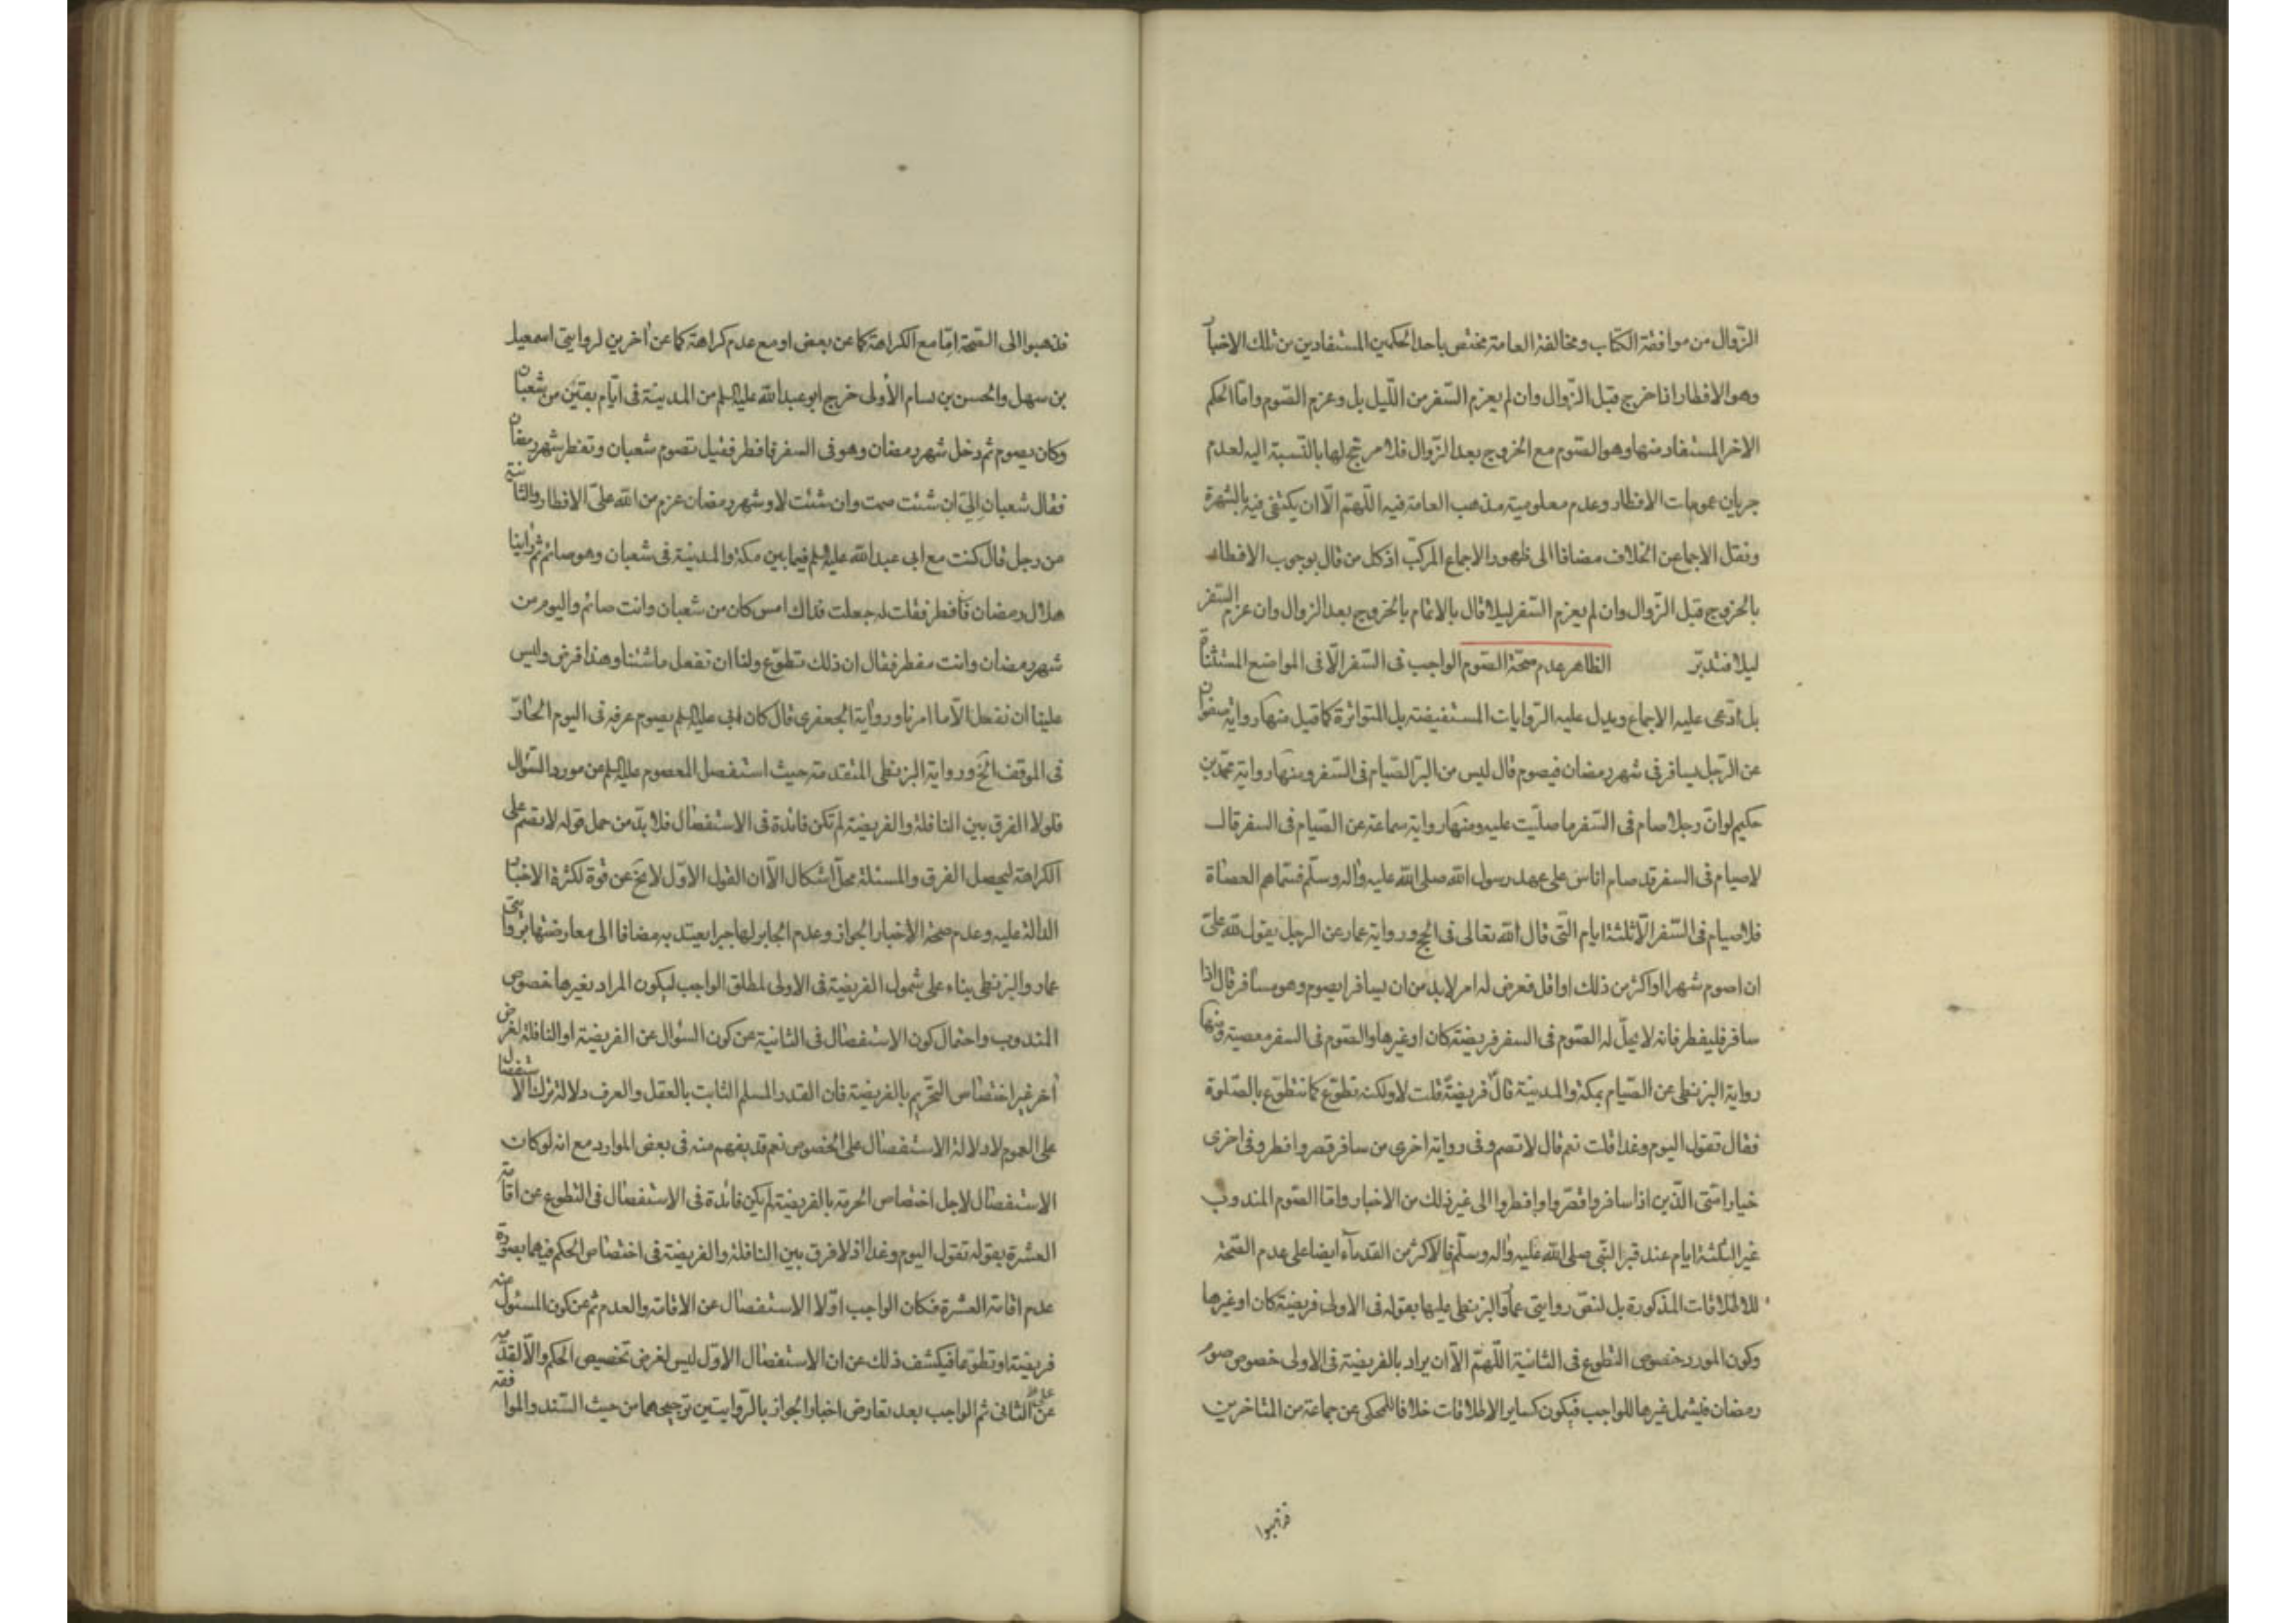 الزّوال من موافقة الكتاب ومخالفة العامة مختص باحد الحكمين المستفادين من تلك الاخبار
وهو الافطار اذا خرج قبل الزوال وان لم يعزم السّفر من اللّيل بل وعزم الصّوم وامّا الحكم
الاخر المستفاد منها وهو الصّوم مع الخروج بعد الزّوال فلا مرجّح لها بالنّسبة اليه لعدم
جريان عمومات الافطار وعدم معلومية مذهب العامة فيه اللّهمّ الّا ان يكتفى فيه بالشهرة
ونقل الاجماع عن الخلاف مضافا الى ظهور الاجماع المركّب اذ كل من قال بوجوب الافطار
بالخروج قبل الزّوال وان لم يعزم السّفر ليلا قال بالاتمام بالخروج بعد الزوال وان عزم السّفر
ليلا فتدبّر الظاهر عدم صحّة الصّوم الواجب فى السّفر الّا فى المواضع المستثناة
بل ادّعى عليه الاجماع ويدل عليه الرّوايات المستفيضة بل المتواترة كما قيل منها رواية صفوان
عن الرّجل يسافر فى شهر رمضان فيصوم قال ليس من البرّ الصّيام فى السّفر ومنها رواية محمّد بن
حكيم لو انّ رجلا صام فى السّفر ما صلّيت عليه ومنها رواية سماعة عن الصّيام فى السفر قال
لا صيام فى السفر قد صام اناس على عهد رسول الله صلى الله عليه واله وسلّم فسمّاهم العصاة
فلا صيام فى السّفر الّا ثلثة ايام التّى قال الله تعالى فى الحج ورواية عمار عن الرجل يقول لله علىّ
ان اصوم شهرا او اكثر من ذلك او اقل فعرض له امر لابد من ان يسافر ايصوم وهو مسافر قال اذا
سافر فليفطر فانه لا يحلّ له الصّوم فى السفر فريضة كان او غيرها والصّوم فى السفر معصية ومنها
رواية البزنطى عن الصّيام بمكة والمدينة قال فريضة قلت لا ولكنه تطوّع كما نتطوّع بالصّلوة
فقال تقول اليوم وغدا قلت نعم قال لا تصم وفى رواية اخرى من سافر قصر وافطر وفى اخرى
خيار امّتى الّذين اذا سافروا قصّروا وافطروا الى غير ذلك من الاخبار وامّا الصّوم المندوب
غير الثلثة ايام عند قبر النّبى صلى الله عليه واله وسلّم فالاكثر من القدماء ايضا على عدم الصّحة
للاطلاقات المذكورة بل لنصّ روايتى عمار والبزنطى عليها بقوله فى الاولى فريضة كان او غيرها
وكون المورد خصوص التطوع فى الثانية اللّهمّ الّا ان يراد بالفريضة فى الاولى خصوص صوم
رمضان فيشمل غيرها للواجب فيكون كساير الاطلاقات خلافا للمحكى عن جماعة من المتاخرين
فذهبوا
فذهبوا الى الصّحة امّا مع الكراهة كما عن بعض او مع عدم كراهة كما عن اخرين لروايتى اسمعيل
بن سهل والحسن بن بسام الأولى خرج ابو عبد الله عليه السلم من المدينة فى ايّام بقين من شعبان
وكان يصوم ثم دخل شهر رمضان وهو فى السفر فافطر فقيل تصوم شعبان وتفطر شهر رمضان
فقال شعبان الىّ ان شئت صمت وان شئت لا وشهر رمضان عزم من الله علىّ الافطار والثانية
عن رجل قال كنت مع ابى عبد الله عليه السلم فيما بين مكة والمدينة فى شعبان وهو صائم ثم راينا
هلال رمضان فافطر فقلت له جعلت فداك امس كان من شعبان وانت صائم واليوم من
شهر رمضان وانت مفطر فقال ان ذلك تطوّع ولنا ان نفعل ما شئنا وهذا فرض وليس
علينا ان نفعل الّا ما امرنا ورواية الجعفرى قال كان ابى عليه السلم يصوم عرفة فى اليوم الحارّ
فى الموقف الخ ورواية البزنطى المتقدمة حيث استفصل المعصوم عليه السلم عن مورد السّؤال
فلولا الفرق بين النافلة والفريضة لم تكن فائدة فى الاستفصال فلا بدّ من حمل قوله لا تصم على
الكراهة ليحصل الفرق والمسئلة محلّ اشكال الّا ان القول الاوّل لا يخ عن قوة لكثرة الاخبار
الدالة عليه وعدم صحة الأخبار الجواز وعدم الجابر لها جبرا يعتد به مضافا الى معارضتها بروايتى
عمار والبزنطى بناء على شمول الفريضة فى الاولى لمطلق الواجب ليكون المراد بغيرها خصوص
المندوب واحتمال كون الاستفصال فى الثانية عن كون السؤال عن الفريضة او النافلة لغرض
آخر غير اختصاص التّحريم بالفريضة فان القدر المسلم الثابت بالعقل والعرف دلالة ترك الاستفصال
على العموم لا دلالة الاستفصال على الخصوص نعم قد يفهم منه فى بعض الموارد مع انه لو كان
الاستفصال لاجل اختصاص الحرمة بالفريضة لم يكن فائدة فى الاستفصال فى التطوع عن اقامة
العشرة بقوله تقول اليوم وغدا اذ لا فرق بين النافلة والفريضة فى اختصاص الحكم فيهما بصورة
عدم اقامة العشرة فكان الواجب اوّلا الاستفصال عن الاقامة والعدم ثم عن كون المسئول عنه
فريضة او تطوّعا فيكشف ذلك عن ان الاستفصال الاوّل ليس لغرض تخصيص الحكم والّا لقدّمه
عن الثانى ثم الواجب بعد تعارض اخبار الجواز بالرّوايتين ترجيحهما من حيث السّند والموافقة